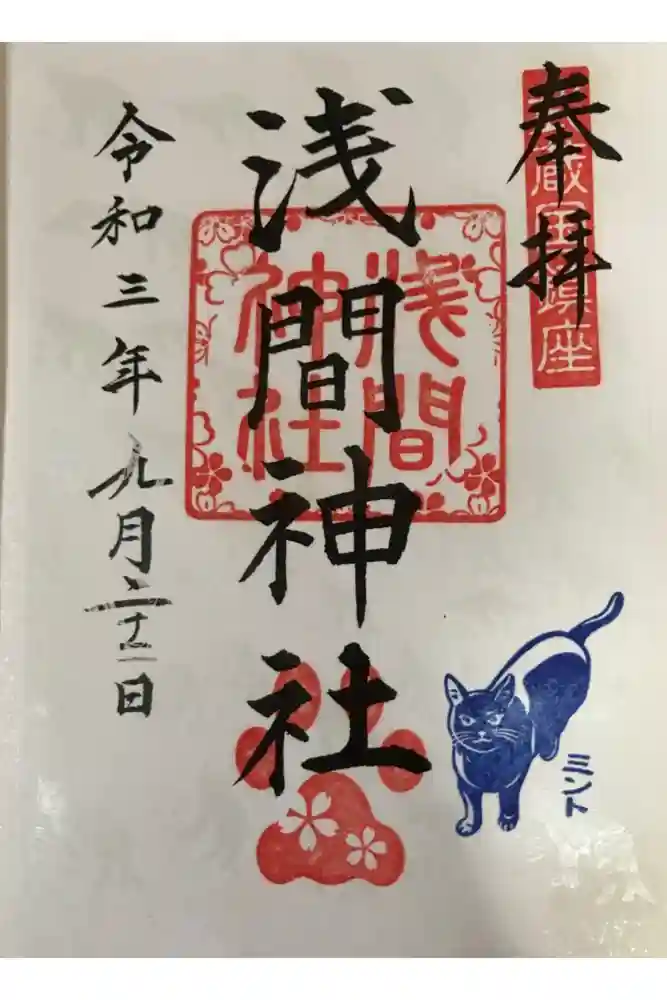 奉拝
蔵
鎮座
浅間神社
浅間
神社
令和三年九月二十二日
ミント